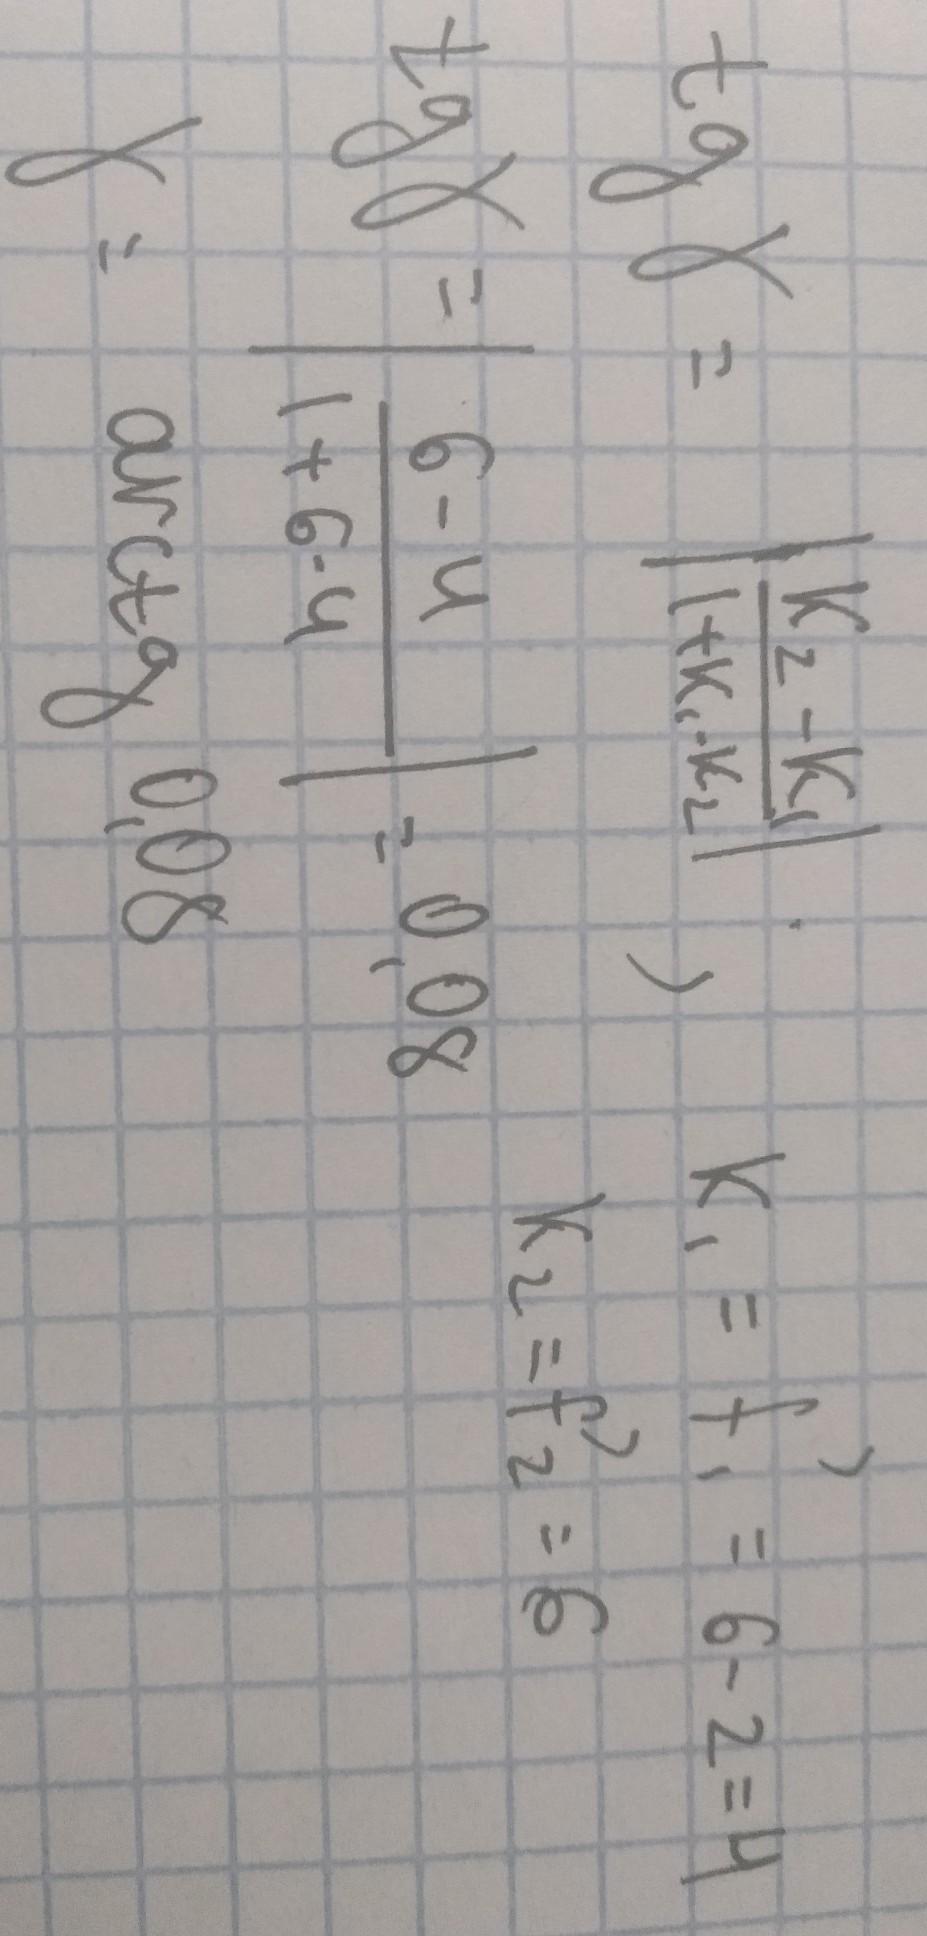 tg γ = |K₂ - K₁ / 1 + K₁ · K₂| ; K₁ = f₁' = 6 - 2 = 4
K₂ = f₂' = 6
tg γ = |6 - 4 / 1 + 6 · 4| = 0,08
γ = arctg 0,08